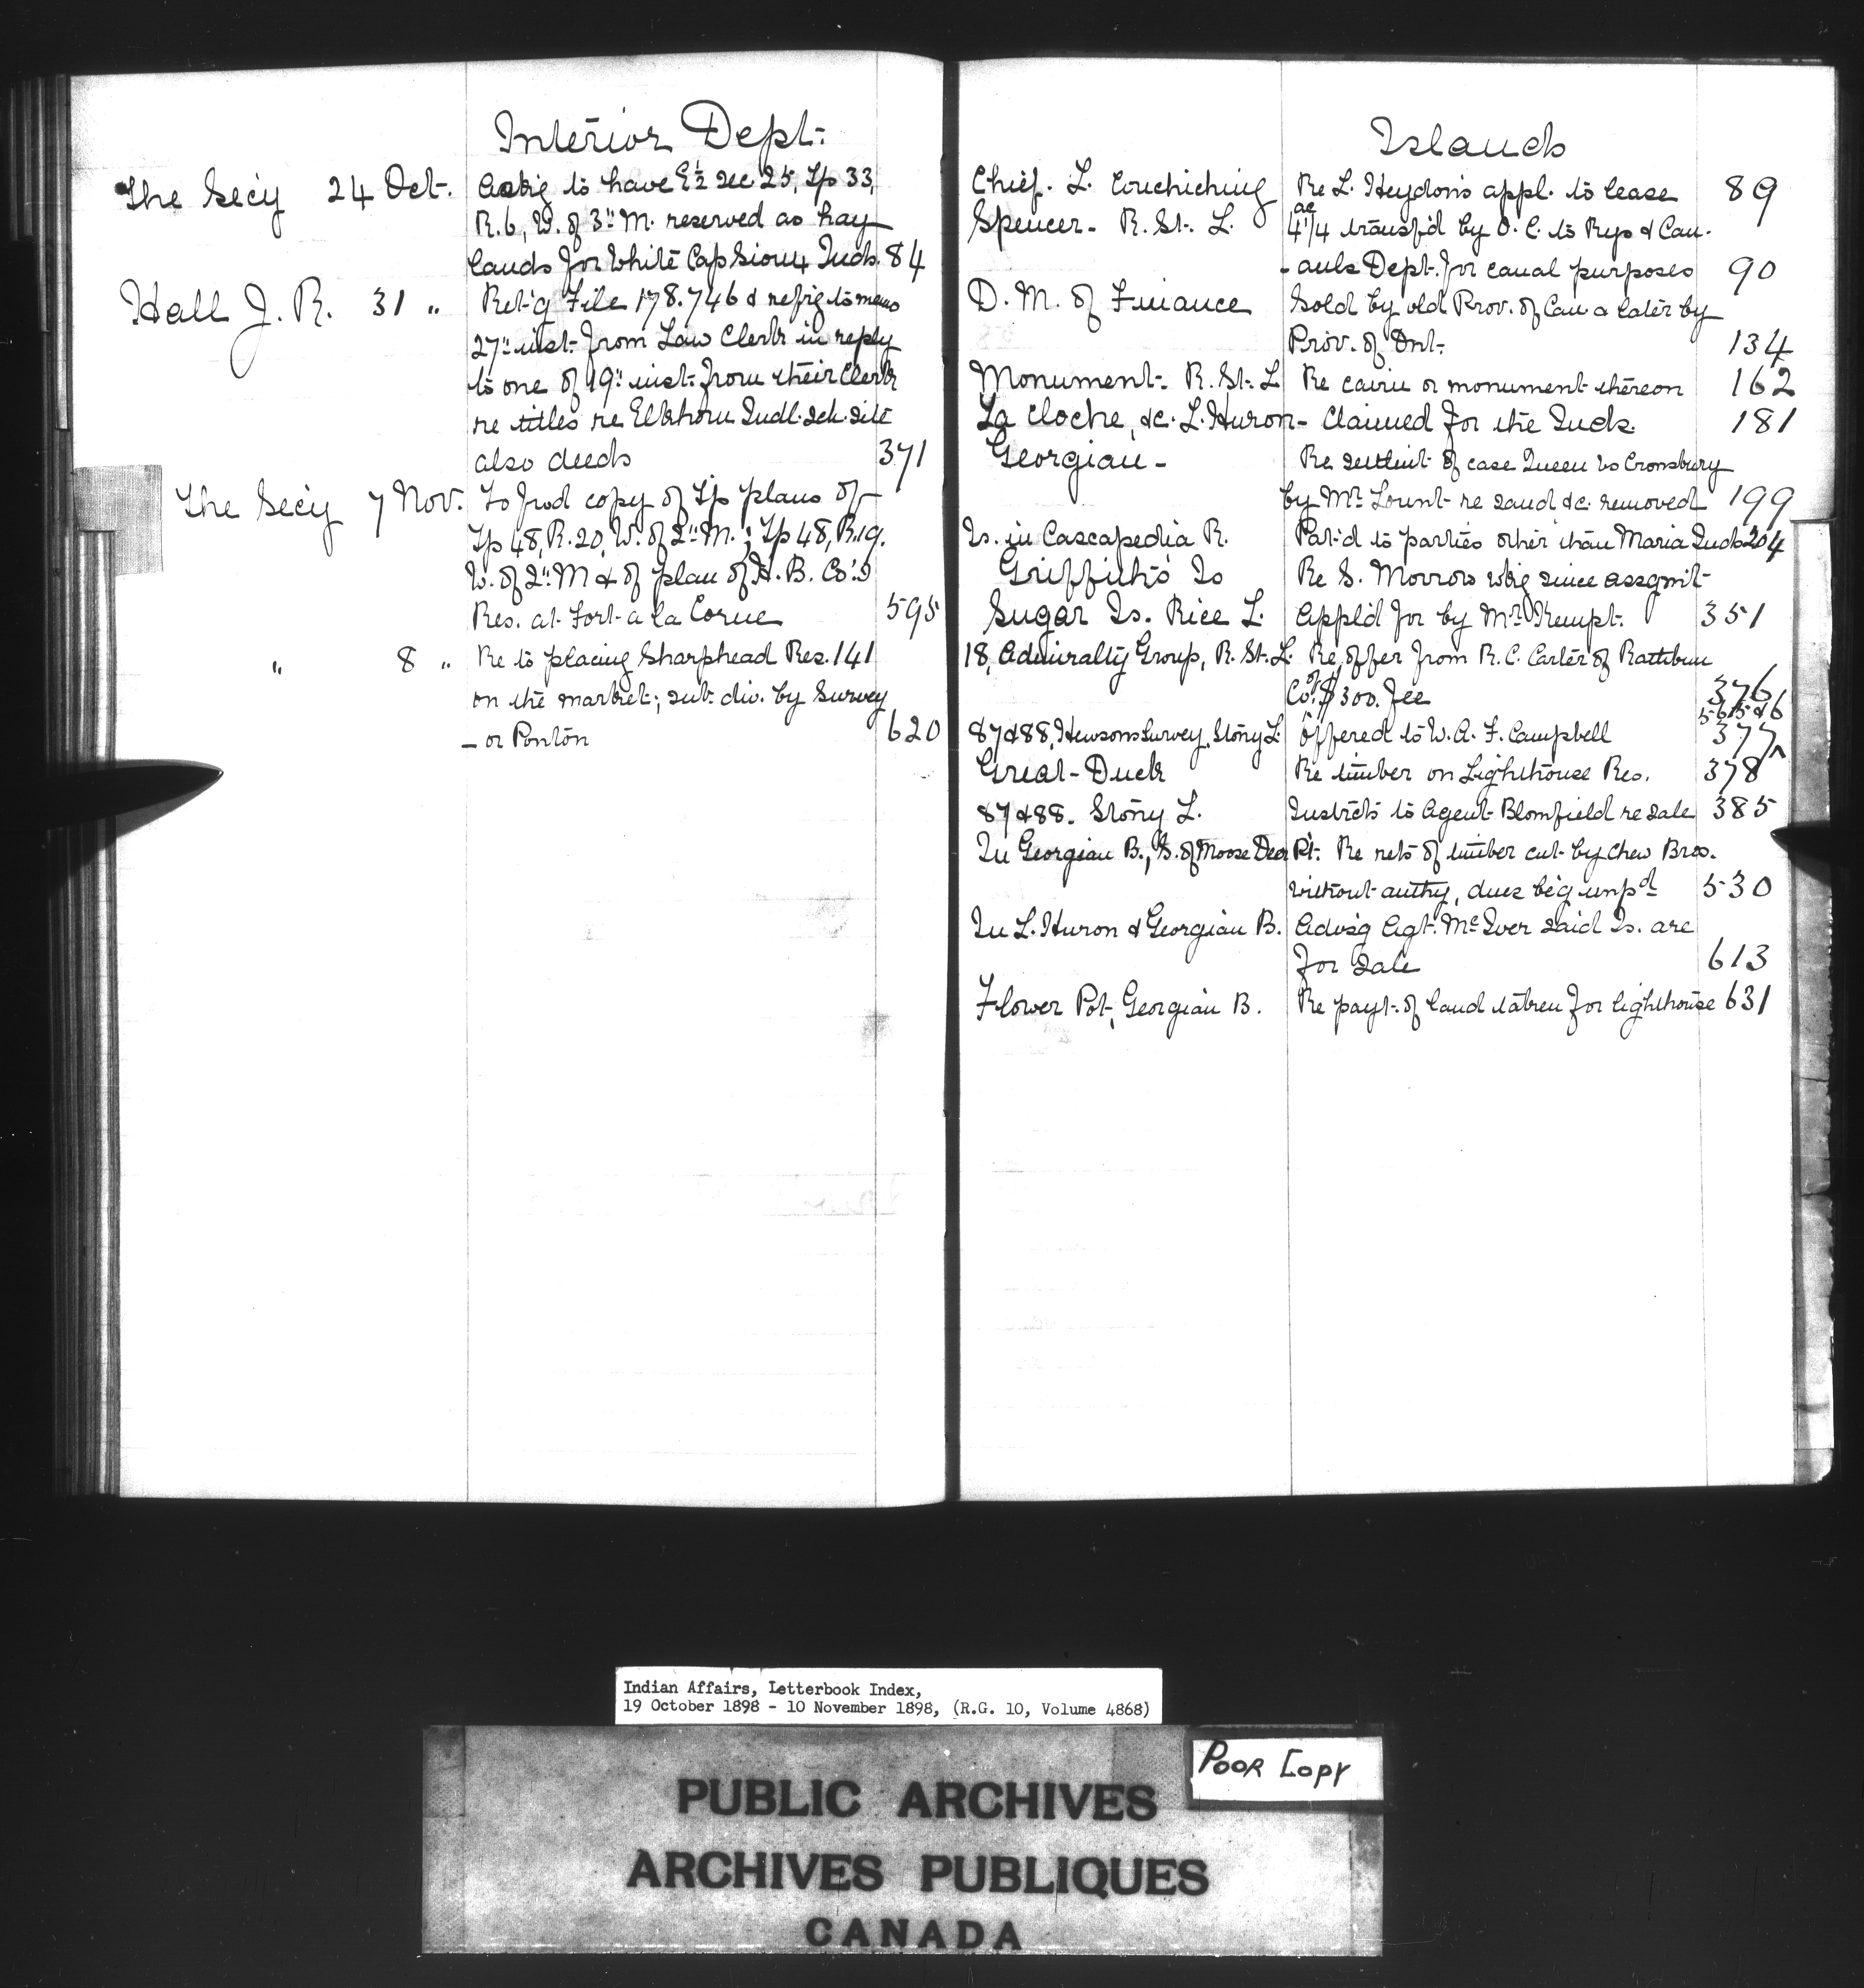 Interior Dept.
The Secy 24 Oct. Asking to have E½ sec 25, Tp 33,
R. 6, W. of 3" M. reserved as hay
lands for White Cap Sioux Inds. 84
Hall J. R. 31 " Ret'g File 178.746 & ref'g to memo
27" inst. from Law Clerk in reply
to one of 19" inst. from their Clerk
re titles re Elkhorn Indl. Sch. site
also deeds 371
The Secy 7 Nov. To fwd copy of Tp plans of
Tp 48, R. 20, W. of 2" M.; Tp 48, R. 19.
W. of 2" M & of plan of H. B. Co's
Res. at Fort a la Corne 595
" 8 " Re to placing Sharphead Res. 141
on the market; sub-div. by Survey
- or Ponton 620
Islands
Chief. L. Couchiching Re L. Heydon's appl. to lease 89
Spencer - R. St. L. 4 1/4 ac transf'd by O. C. to Rys & Can-
-anls Dept. for canal purposes 90
D. M. of Finance Sold by old Prov. of Can & later by
Prov. of Ont. 134
Monument - R. St. L Re cairn or monument thereon 162
La Cloche, &c. L. Huron - Claimed for the Inds. 181
Georgian - Re settlmt of case Queen vs Cronsbury
by Mr. Lount re sand &c. removed 199
Is. in Cascapedia R. Pat'd to parties other than Maria Inds 204
Griffith's Is Re S. Morrow wh'g since assgmt
Sugar Is. Rice L. Appl'd for by Mr. Kempt. 351
18, Admiralty Group, R. St. L. Re offer from R. C. Carter of Rathbun
Co. of $300. fee 376
87 & 88, Hewsons Survey, Stony L. offered to W. A. F. Campbell 377 515 & 6
Great Duck Re timber on Lighthouse Res. 378
87 & 88. Stony L. Instrcts to Agent Blomfield re sale 385
In Georgian B., S. of Moose Deer Pt. Re rets of timber cut by Chew Bros.
without authy, dues be'g unpd 530
In L. Huron & Georgian B. Advis'g Agt. McIver said Is. are
for sale 613
Flower Pot, Georgian B. Re payt. of land taken for lighthouse 631
Indian Affairs, Letterbook Index,
19 October 1898 - 10 November 1898, (R.G. 10, Volume 4868)
Poor Copy
PUBLIC ARCHIVES
ARCHIVES PUBLIQUES
CANADA